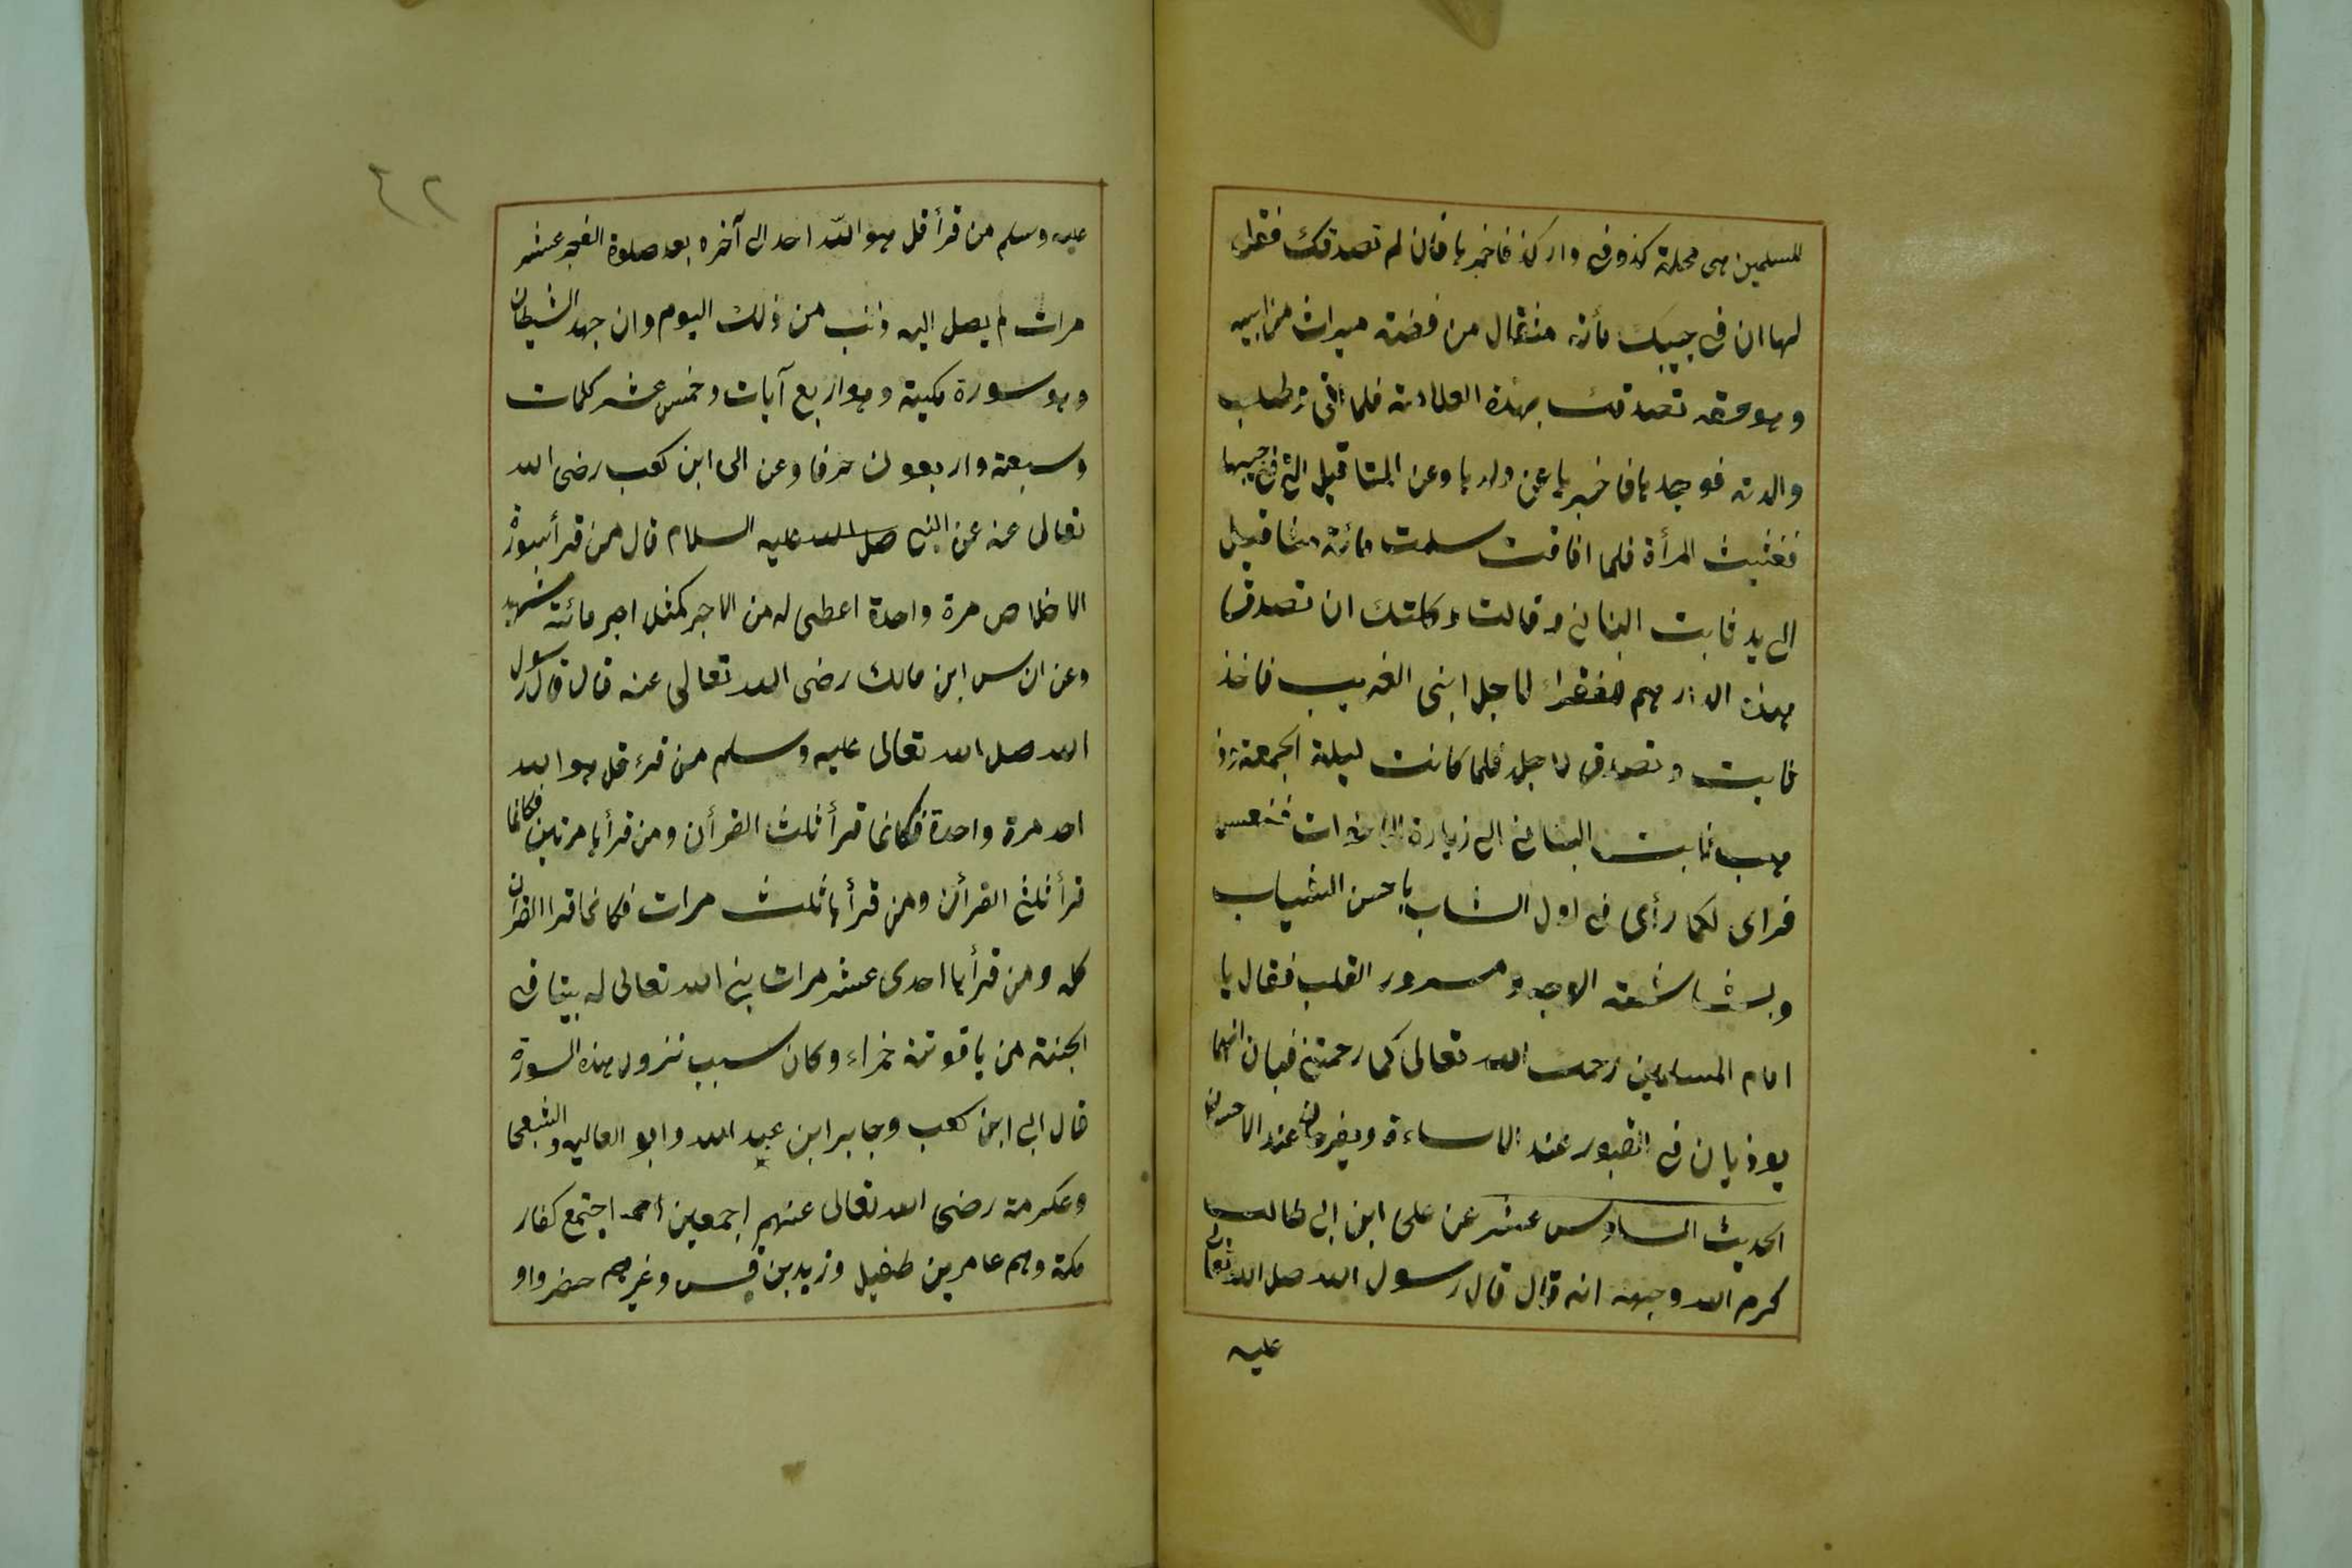 للمسلمين هى محلة كذا وفى دار كذا فاخبرها فان لم تصدقك فقل
لها ان فى جيبك مأئة مثقال من فضة ميراث من ابيه
وهو حقه تصدقك بهذه العلامة فلما افاق وطلب
والدته فوجدها فاخبرها عن ولدها وعن المثاقيل التى فى جيبها
فغشيت المرأة فلما افاقت سلمت مائة مثاقيل
الى يد ثابت البنانى وقالت وكلتك ان تصدق
بهذه الدراهم للفقراء لاجل ابنى الغريب فاخذ
ثابت وتصدق لاجله فلما كانت ليلة الجمعة ذ
هب ثابت البنانى الى زيارة الاخوات فنعس
فراى كما رأى فى اول الشاب باحسن الثياب
وبشاشة الوجه ومسرور القلب فقال يا
امام المسلمين رحمك الله تعالى كما رحمتنى فبان انهما
يوذيان فى القبور عند الاساءة ويفرحان عند الاحسان
الحديث السادس عشر عن على ابن ابى طالب
كرم الله وجهه انه قال قال رسول الله صلى الله تعالى
عليه
٤٢
عليه وسلم من قرأ قل هو الله احد الى آخره بعد صلوة الفجر عشر
مرات لم يصل اليه ذنب من ذلك اليوم وان جهد الشيطان
وهو سورة مكية وهو اربع آيات وخمس عشر كلمات
وسبعة واربعون حرفا وعن ابى ابن كعب رضى الله
تعالى عنه عن النبى صلى الله عليه السلام قال من قرأ سورة
الاخلاص مرة واحدة اعطى له من الاجر كمثل اجر مائة شهيد
وعن انس ابن مالك رضى الله تعالى عنه قال قال رسول
الله صلى الله تعالى عليه وسلم من قرء قل هو الله
احد مرة واحدة فكانما قرأ ثلث القرأن ومن قرأها مرتين فكانما
قرأ ثلثى القرأن ومن قرأها ثلث مرات فكانما قرا القرأن
كله ومن قرأها احدى عشر مرات بنى الله تعالى له بيتا فى
الجنة من ياقوتة حمراء وكان سبب نزول هذه السورة
قال ابى ابن كعب وجابر ابن عبد الله وابو العاليه والشعبى
وعكرمة رضى الله تعالى عنهم اجمعين انه اجتمع كفار
مكة وهم عامر بن طفيل وزيد بن قيس وغيرهم حضروا و